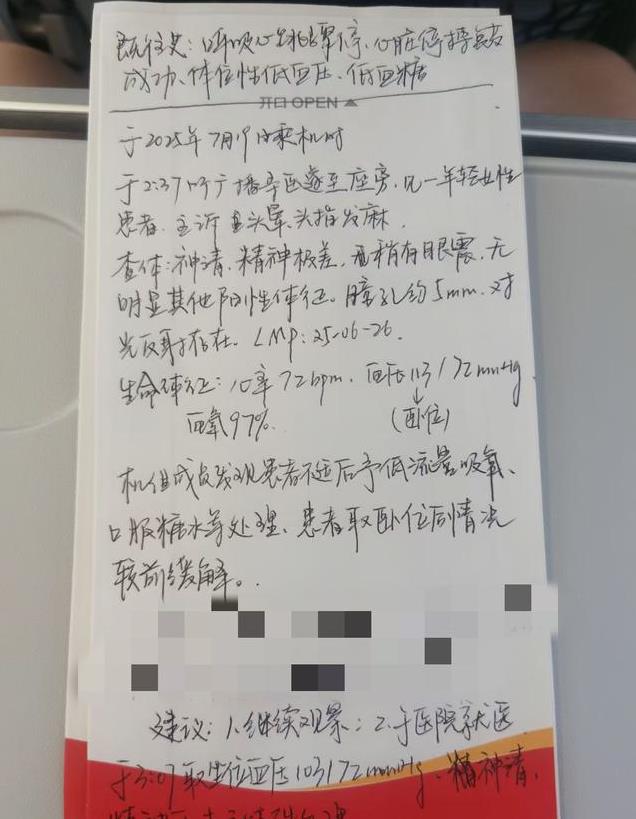 既往史：呼吸心跳骤停、心脏停搏复苏
成功、体位性低血压、低血糖
开口 OPEN
于2025年7月19日乘机时
于2:37听广播寻医遂至座旁，见一年轻女性
患者，主诉 头晕、头指发麻．
查体：神清，精神极差，稍有眼震，无
明显其他阳性体征。瞳孔约5mm．对
光反射存在．LMP：25-06-26．
生命体征：心率72bpm．血压113/72mmHg．
血氧97%． （卧位）
机组成员发现患者不适后予低流量吸氧、
口服糖水等处理，患者取卧位后情况
较前缓解。
建议：1.继续观察；2.于医院就医
于3:07取坐位血压103/72mmHg、精神清，